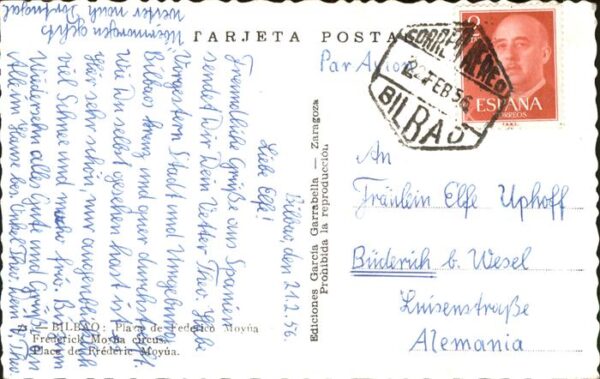 TARJETA POSTA
Par Avion
2
CORREO AEREO
22 FEB 56
BILBAO
ESPAÑA
CORREOS
Bilbao, den 21.2.56.
Liebe Elfe!
Freundliche Grüße aus Spanien
sendet Dir Dein Vetter Theo. Habe
Vorgestern Stadt und Umgebung
Bilbaos kreuz und quer durchstreift.
Wie Du selbst gesehen hast ist es
hier sehr schön, nur augenblicklich
viel Schnee und mehr
Wiedersehn alles Gute und Grüße von
Alle im Hause bes. Onkel Theo Dein Theo
Übermorgen geht's
weiter nach Portugal
Ediciones García Garrabella — Zaragoza
Prohibida la reproducción
An
Fräulein Elfe Uphoff
Büderich b. Wesel
Luisenstraße
Alemania
BILBAO: Plaza de Federico Moyúa
Frederick Moyua circus.
Place de Fréderic Moyúa.